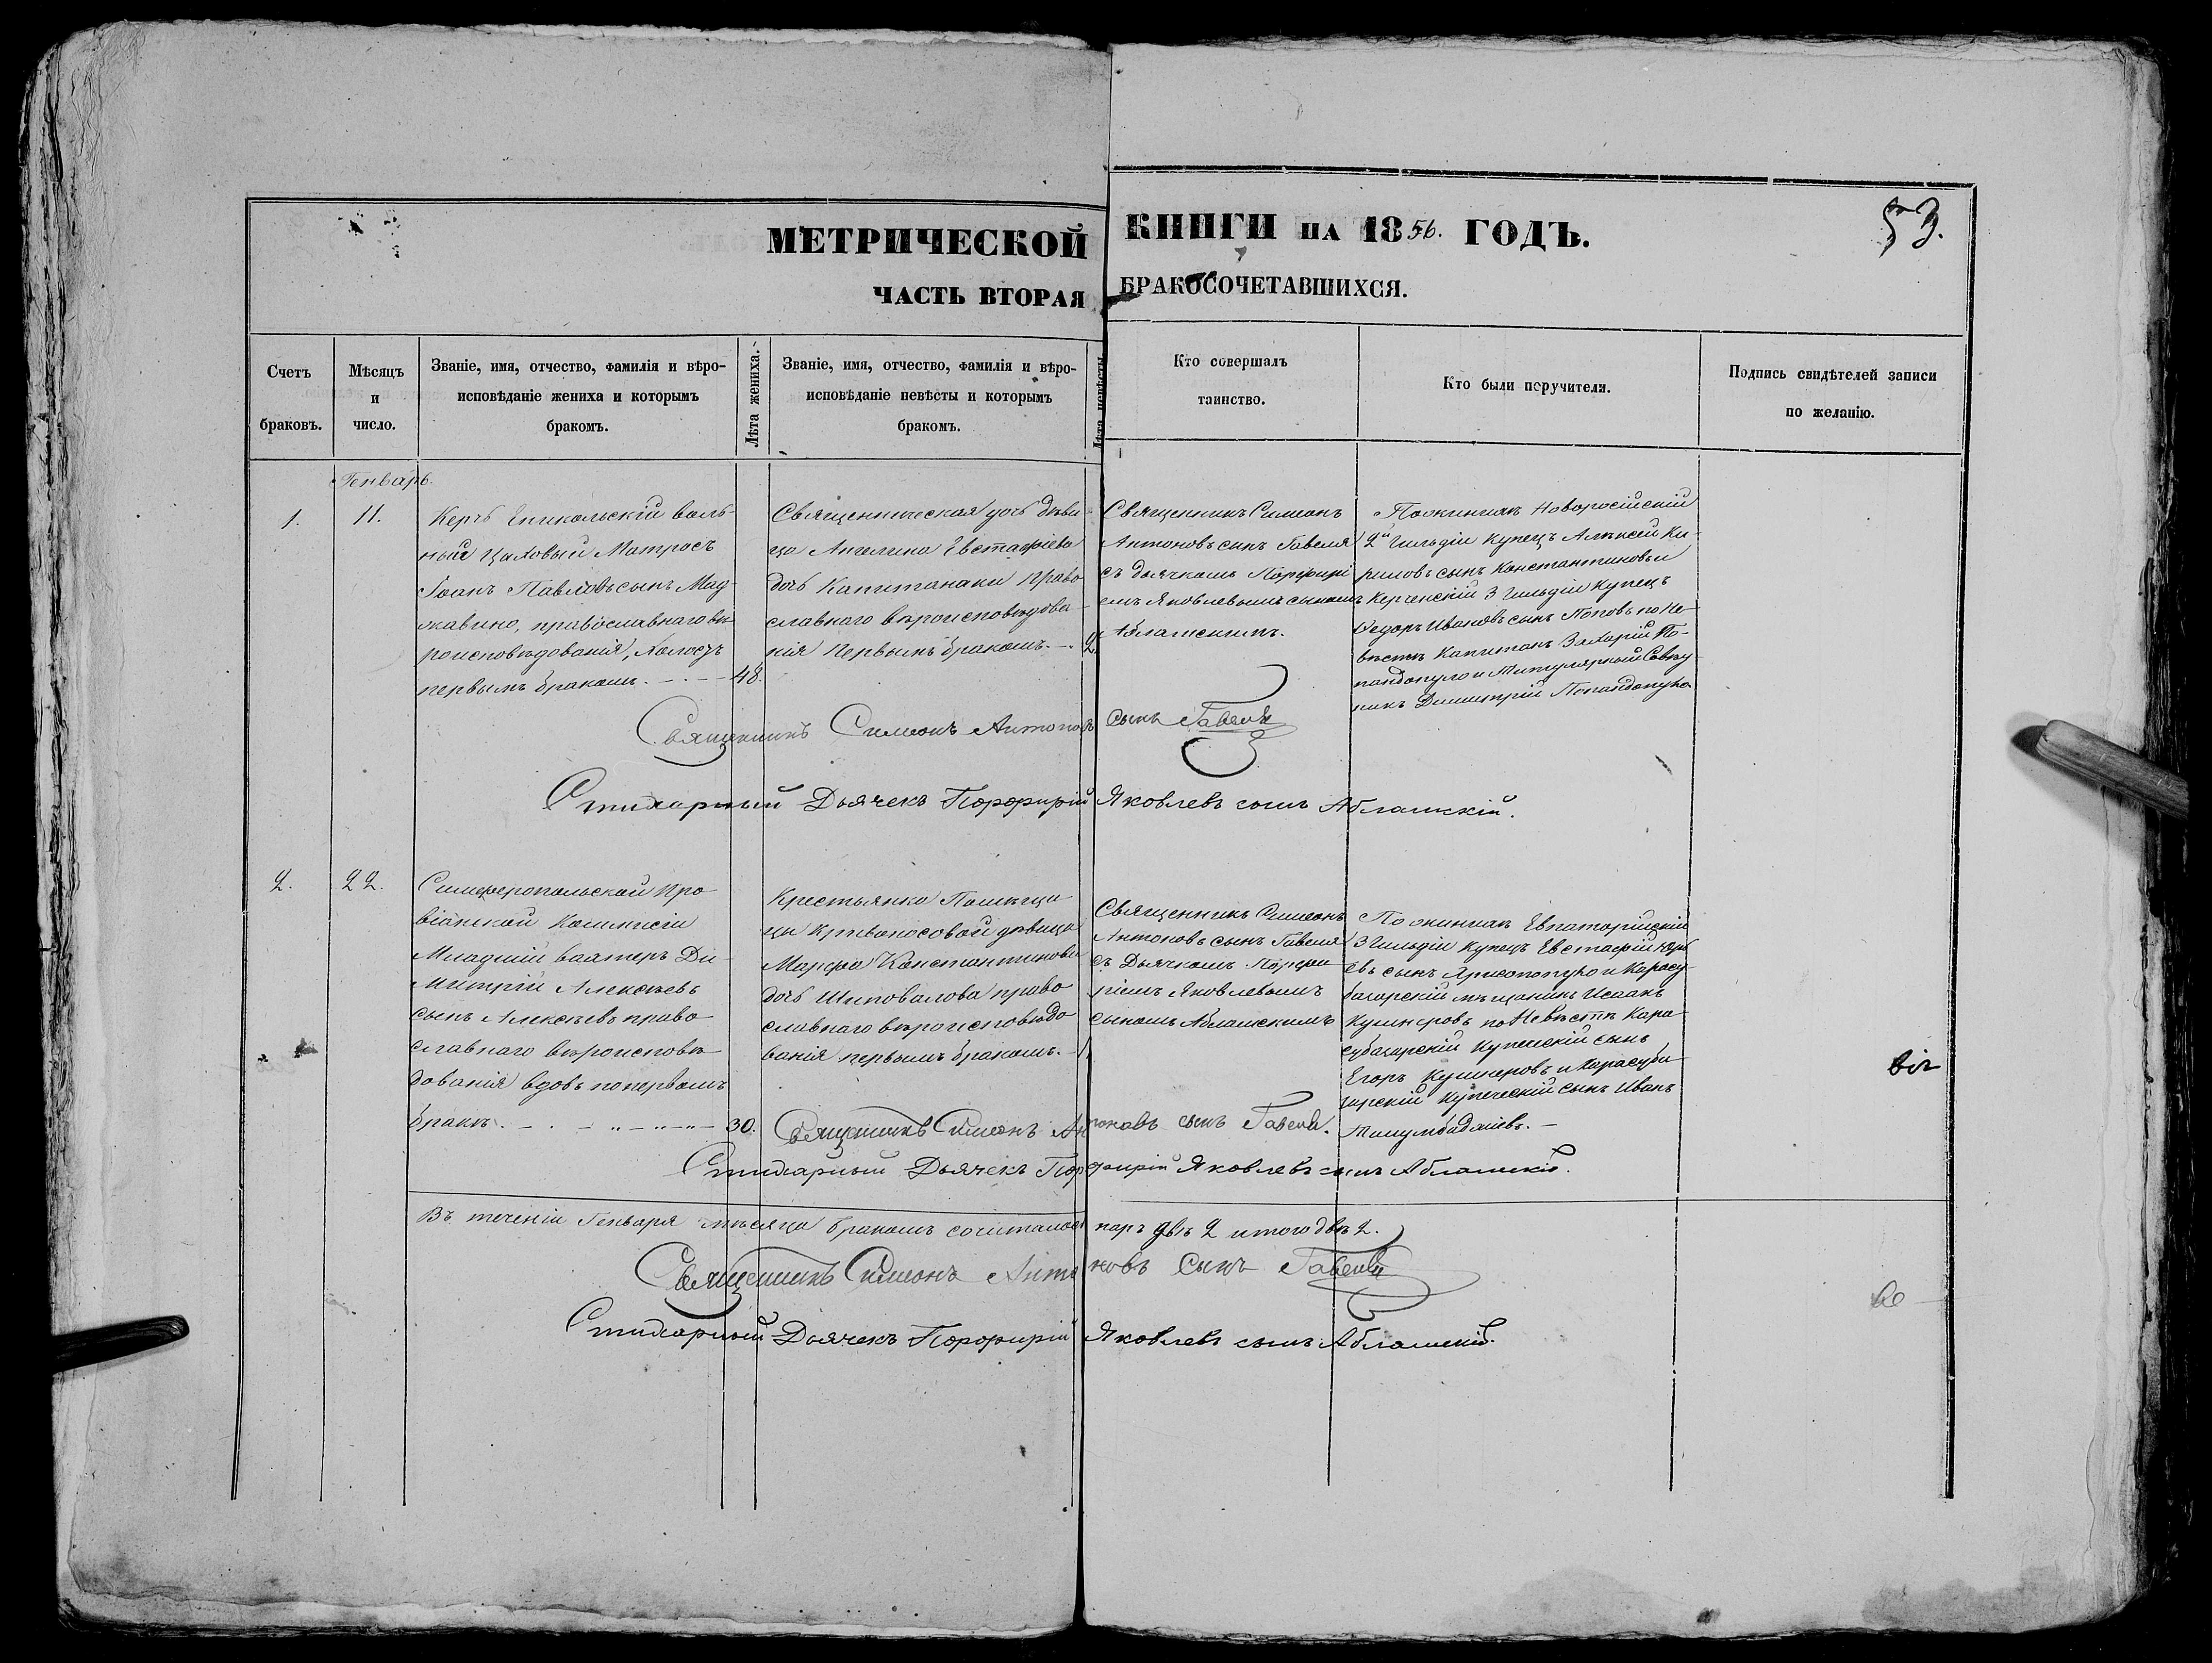 МЕТРИЧЕСКОЙ КНИГИ НА 1856. ГОДЪ.
53.
ЧАСТЬ ВТОРАЯ БРАКОСОЧЕТАВШИХСЯ.
Счетъ
браковъ.
Мѣсяцъ
и
число.
Званіе, имя, отчество, фамилія и вѣро-
исповѣданіе жениха и которымъ
бракомъ.
Лѣта жениха.
Званіе, имя, отчество, фамилія и вѣро-
исповѣданіе невѣсты и которымъ
бракомъ.
Лѣта невѣсты
Кто совершалъ
таинство.
Кто были поручители.
Подпись свидѣтелей записи
по желанію.
Генварь.
1.
11.
Керчь Еникольскій воль-
ный Цаховый Матросъ
Іоанъ Павловъ сынъ Мад-
жавино, православнаго вѣ-
роисповѣдованія, Холостъ
первымъ бракомъ. - . - - 48.
Священническая дочь дѣви
ца Ангелина Евстафіева
дочь Капитанаки право
славнаго вѣроисповѣдова-
нія Первымъ бракомъ. - . 2
Священникъ Симеонъ
Антоновъ сынъ Гавеля
съ дьячкомъ Порфирі
емъ Яковлевымъ сыномъ
Аблажскимъ.
По женихѣ Новоросійскій
2й Гильдіи купецъ Алексей Ки-
риловъ сынъ Константиновъ и
Керченскій 3 Гильдіи купецъ
Федоръ Ивановъ сынъ Поповъ по Не-
вѣстѣ Капитанъ Захарій По-
пандопуло и Титулярный Совѣту
никъ Димитрій Попандопуло
Священникъ Симеонъ Антоновъ сынъ Гавеля
Стихарный Дьячекъ Порфирій Яковлевъ сынъ
2.
22.
Симферопольской Про
віанской Коммисіи
Младшій вахтеръ Ди-
митрій Алексѣевъ
сынъ Алексѣевъ право
славнаго вѣроисповѣ
дованія вдовъ по первомъ
бракѣ. - . - „ - „ - „ - 30.
Крестьянка Помѣщи
цы Кривоносовой дѣвица
Марфа Константинова
дочь Шаповалова право
славнаго вѣроисповѣдо
ванія первымъ бракомъ. - 1
Священникъ Симеонъ
Антоновъ сынъ Гавеля
съ Дьячкомъ Порфи
ріемъ Яковлевымъ
сыномъ
По женихѣ Евпаторійскій
3 Гильдіи купецъ Евстафій Юрь
евъ сынъ и Карасу-
базарскій мѣщанинъ Исаакъ
по Невѣстѣ Кара-
субазарскій Купческій сынъ
Егоръ и Карасуба-
зарскій купеческій сынъ Иванъ
Священникъ Симеонъ Антоновъ сынъ Гавеля.
Стихарный Дьячекъ Порфирій Яковлевъ сынъ
Въ теченіи Генваря мѣсяца бракомъ сочиталось паръ двѣ 2 итого двѣ 2.
Священникъ Симеонъ Антоновъ сынъ Гавеля
Стихарный Дьячекъ Порфирій Яковлевъ сынъ